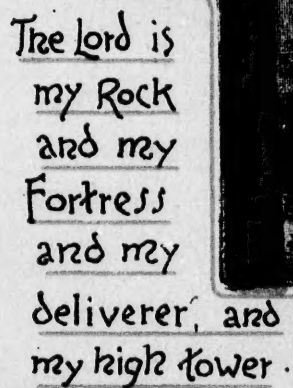 The Lord is
my Rock
and my
Fortress
and my
deliverer, and
my high tower.